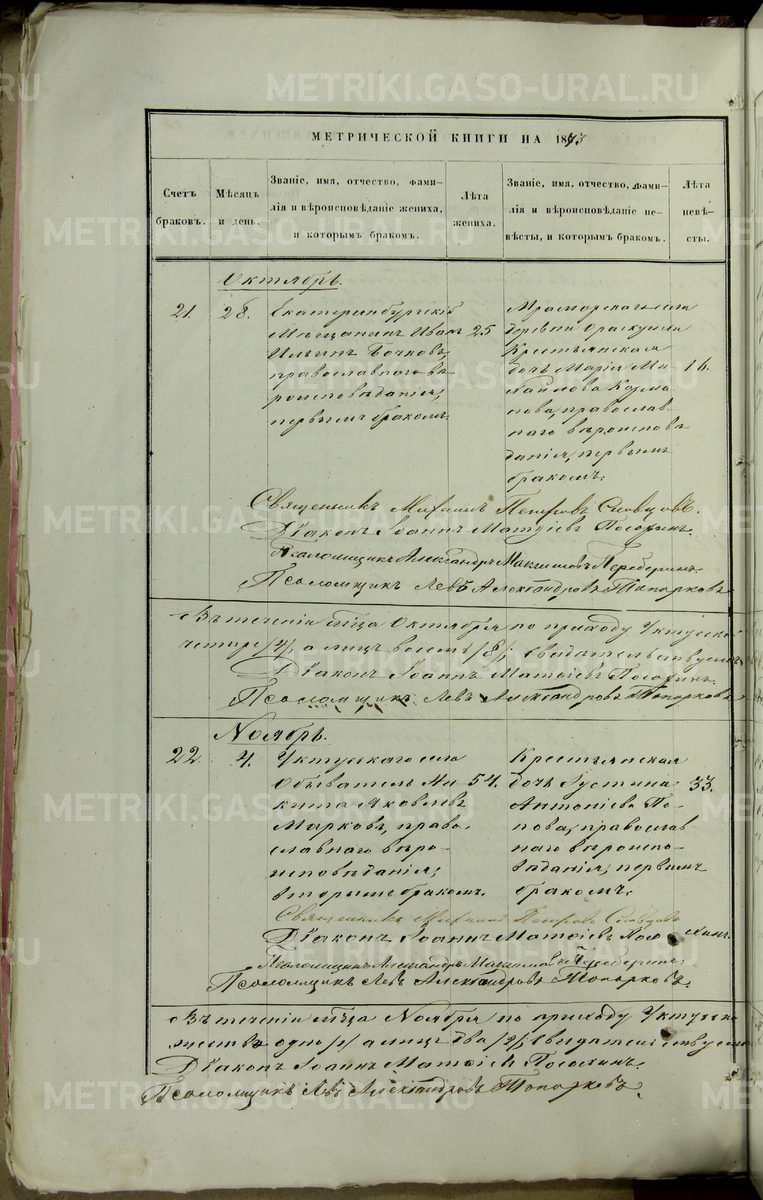 МЕТРИЧЕСКОЙ КНИГИ НА 1873
Счетъ браковъ.
Мѣсяцъ и день.
Званіе, имя, отчество, фами-
лія и вѣроисповѣданіе жениха,
и которымъ бракомъ.
Лѣта жениха.
Званіе, имя, отчество, фами-
лія и вѣроисповѣданіе не-
вѣсты, и которымъ бракомъ.
Лѣта невѣ-
сты.
Октябрь.
21.
28.
Екатеринбургскій
Мѣщанинъ Иванъ
Ильинъ Бочковъ,
православнаго вѣ
роисповѣданія,
первымъ бракомъ.
25
Мраморскаго села
деревни
Крестьянская
дочь Марія Ми
хайлова Козма
нова, православ
наго вѣроисповѣ
данія, первымъ
бракомъ.
16.
Священникъ Михаилъ Петровъ Словцовъ.
Діаконъ Іоаннъ Матѳіевъ
Псаломщикъ Александръ Максимовъ
Псаломщикъ Левъ Александровъ Топорковъ
Въ теченіи мѣсца Октября по приходу Уктусско
четыре /4/, а лицъ восемь /8/, свидѣтельствуемъ
Діаконъ Іоаннъ Матѳіевъ
Псаломщикъ Левъ Александровъ Топорковъ
Ноябрь.
22.
4.
Уктусскаго села
Обыватель Ни
кита Яковлевъ
Марковъ, право
славнаго вѣро-
исповѣданія,
вторымъ бракомъ.
54.
Крестьянская
дочь Іустина
Антоніева По-
пова, православ
наго вѣроиспо-
вѣданія, первымъ
бракомъ.
33.
Священникъ Михаилъ Петровъ Словцовъ
Діаконъ Іоаннъ Матѳіевъ
Псаломщикъ Александръ Максимовъ
Псаломщикъ Левъ Александровъ Топорковъ.
Въ теченіи мѣсца Ноября по приходу Уктусско
одно /1/ а лицъ два /2/, свидѣтельствуемъ
Діаконъ Іоаннъ Матѳіевъ
Псаломщикъ Левъ Александровъ Топорковъ.
METRIKI.GASO-URAL.RU